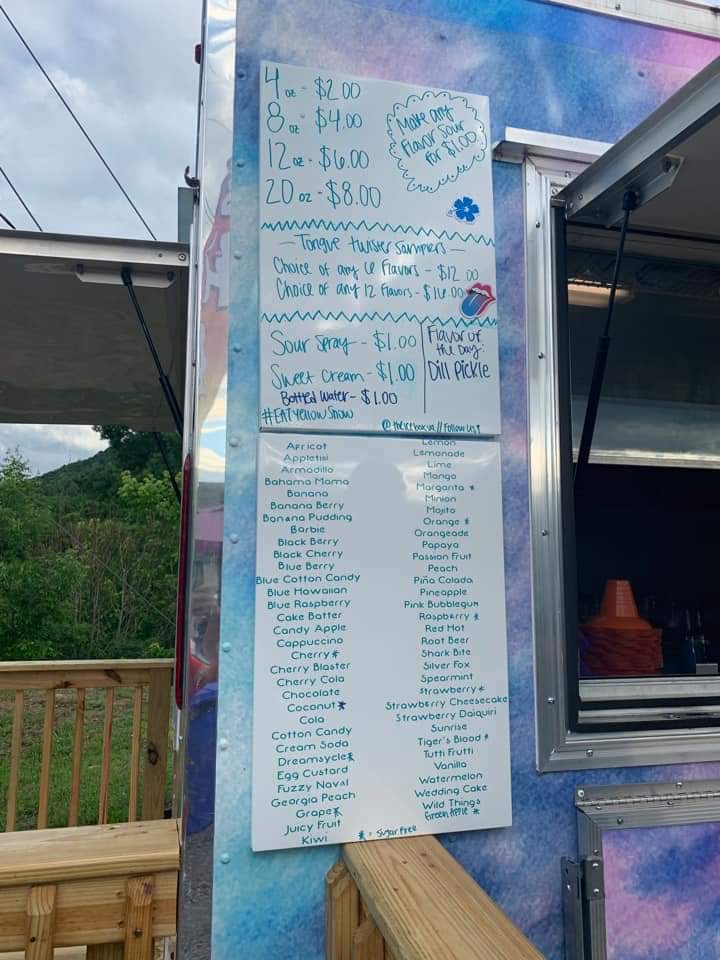 4 oz - $2.00
8 oz - $4.00
12 oz - $6.00
20 oz - $8.00
Make any
Flavor Sour
for $1.00
- Tongue twister Samplers -
Choice of any 6 Flavors - $12.00
Choice of any 12 Flavors - $16.00
Sour Spray - $1.00
Sweet Cream - $1.00
Bottled Water - $1.00
#EATYellowSnow
Flavor of
the Day:
Dill Pickle
// Follow Us!
Apricot
Appletisi
Armadillo
Bahama Mama
Banana
Banana Berry
Banana Pudding
Barbie
Black Berry
Black Cherry
Blue Berry
Blue Cotton Candy
Blue Hawaiian
Blue Raspberry
Cake Batter
Candy Apple
Cappuccino
Cherry*
Cherry Blaster
Cherry Cola
Chocolate
Coconut*
Cola
Cotton Candy
Cream Soda
Dreamsycle*
Egg Custard
Fuzzy Naval
Georgia Peach
Grape*
Juicy Fruit
Kiwi
Lemon
Lemonade
Lime
Mango
Margarita *
Minion
Mojito
Orange *
Orangeade
Papaya
Passion Fruit
Peach
Piña Colada
Pineapple
Pink Bubblegum
Raspberry *
Red Hot
Root Beer
Shark Bite
Silver Fox
Spearmint
Strawberry *
Strawberry Cheesecake
Strawberry Daiquiri
Sunrise
Tiger's Blood *
Tutti Frutti
Vanilla
Watermelon
Wedding Cake
Wild Things
Green Apple *
* = Sugar Free